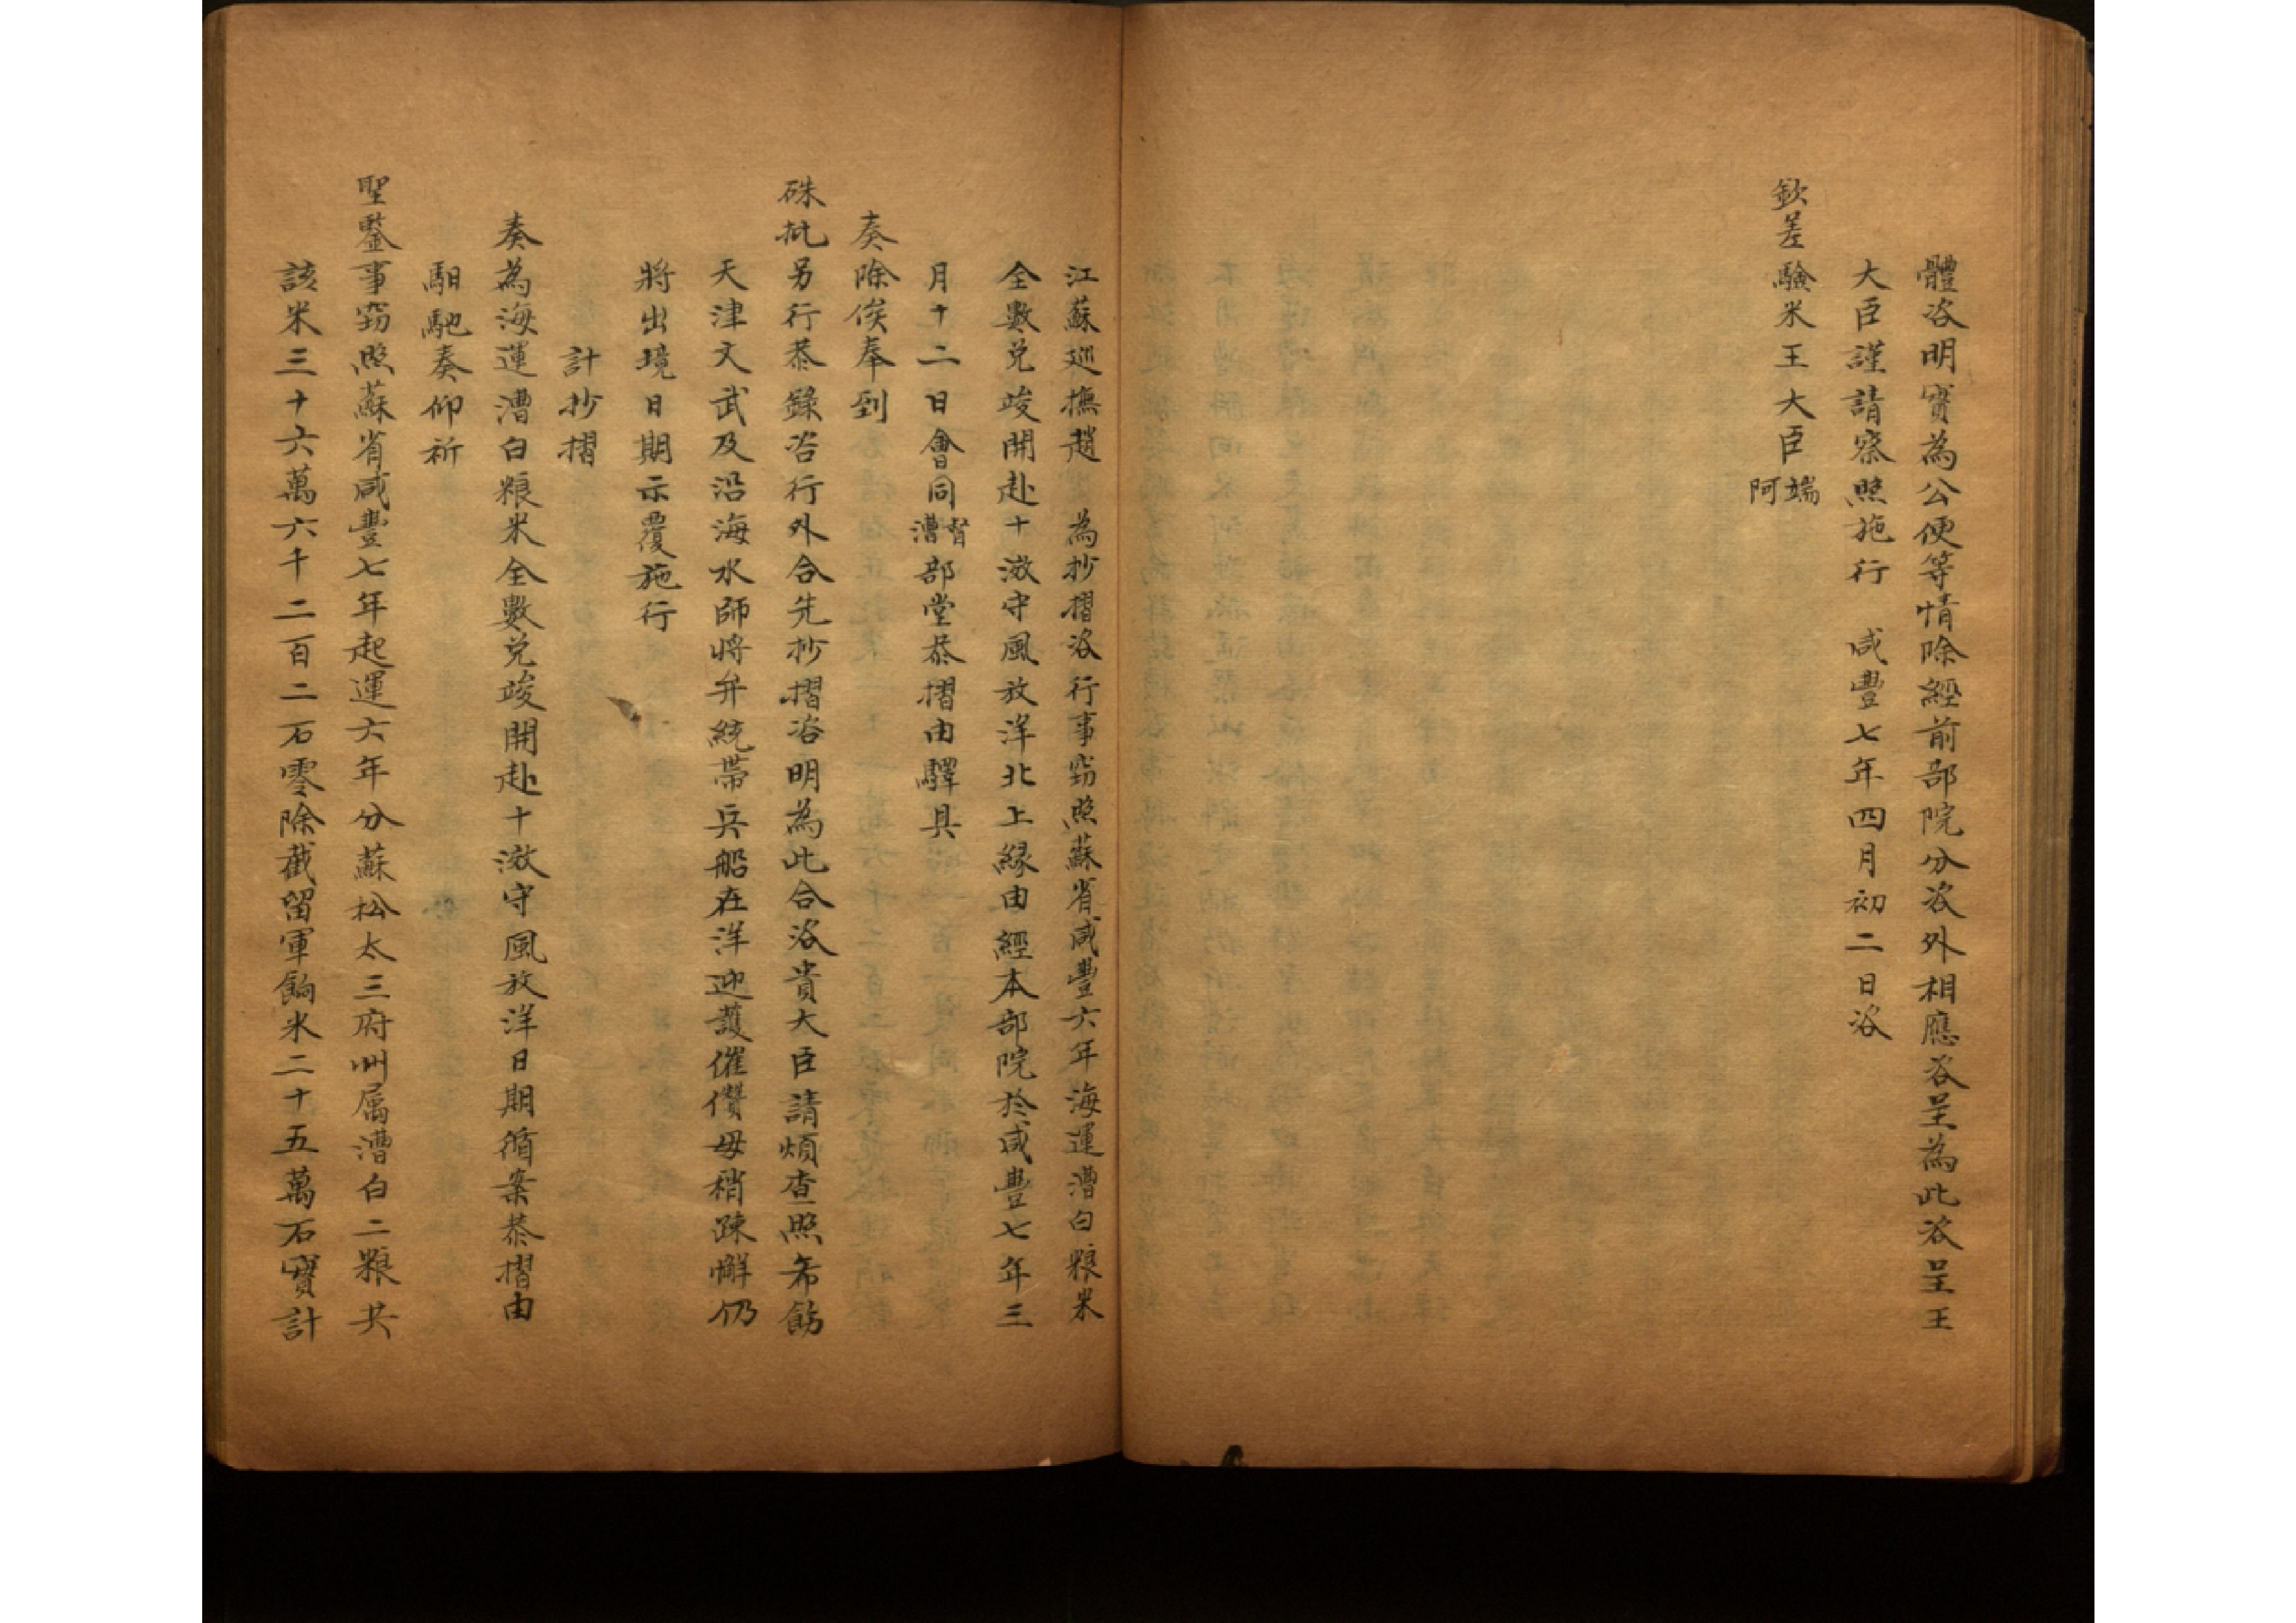 體咨明實為公便等情除經前部院分咨外相應咨呈為此咨呈王
大臣謹請察照施行　咸豐七年四月初二日咨
欽差驗米王大臣端阿
江蘇巡撫趙　為抄摺咨行事窃照蘇省咸豐六年海運漕白粮米
全數兌竣開赴十滧守風放洋北上緣由經本部院於咸豐七年三
月十二日會同督漕部堂恭摺由驛具
奏除俟奉到
硃批另行恭錄咨行外合先抄摺咨明為此合咨貴大臣請煩查照希飭
天津文武及沿海水師將弁統帶兵船在洋迎護催儹毋稍踈懈仍
將出境日期示覆施行
計抄摺
奏為海運漕白粮米全數兌竣開赴十滧守風放洋日期循案恭摺由
馹馳奏仰祈
聖鑒事窃照蘇省咸豐七年起運六年分蘇松太三府州属漕白二粮共
該米三十六萬六千二百二石零除截留軍餉米二十五萬石實計